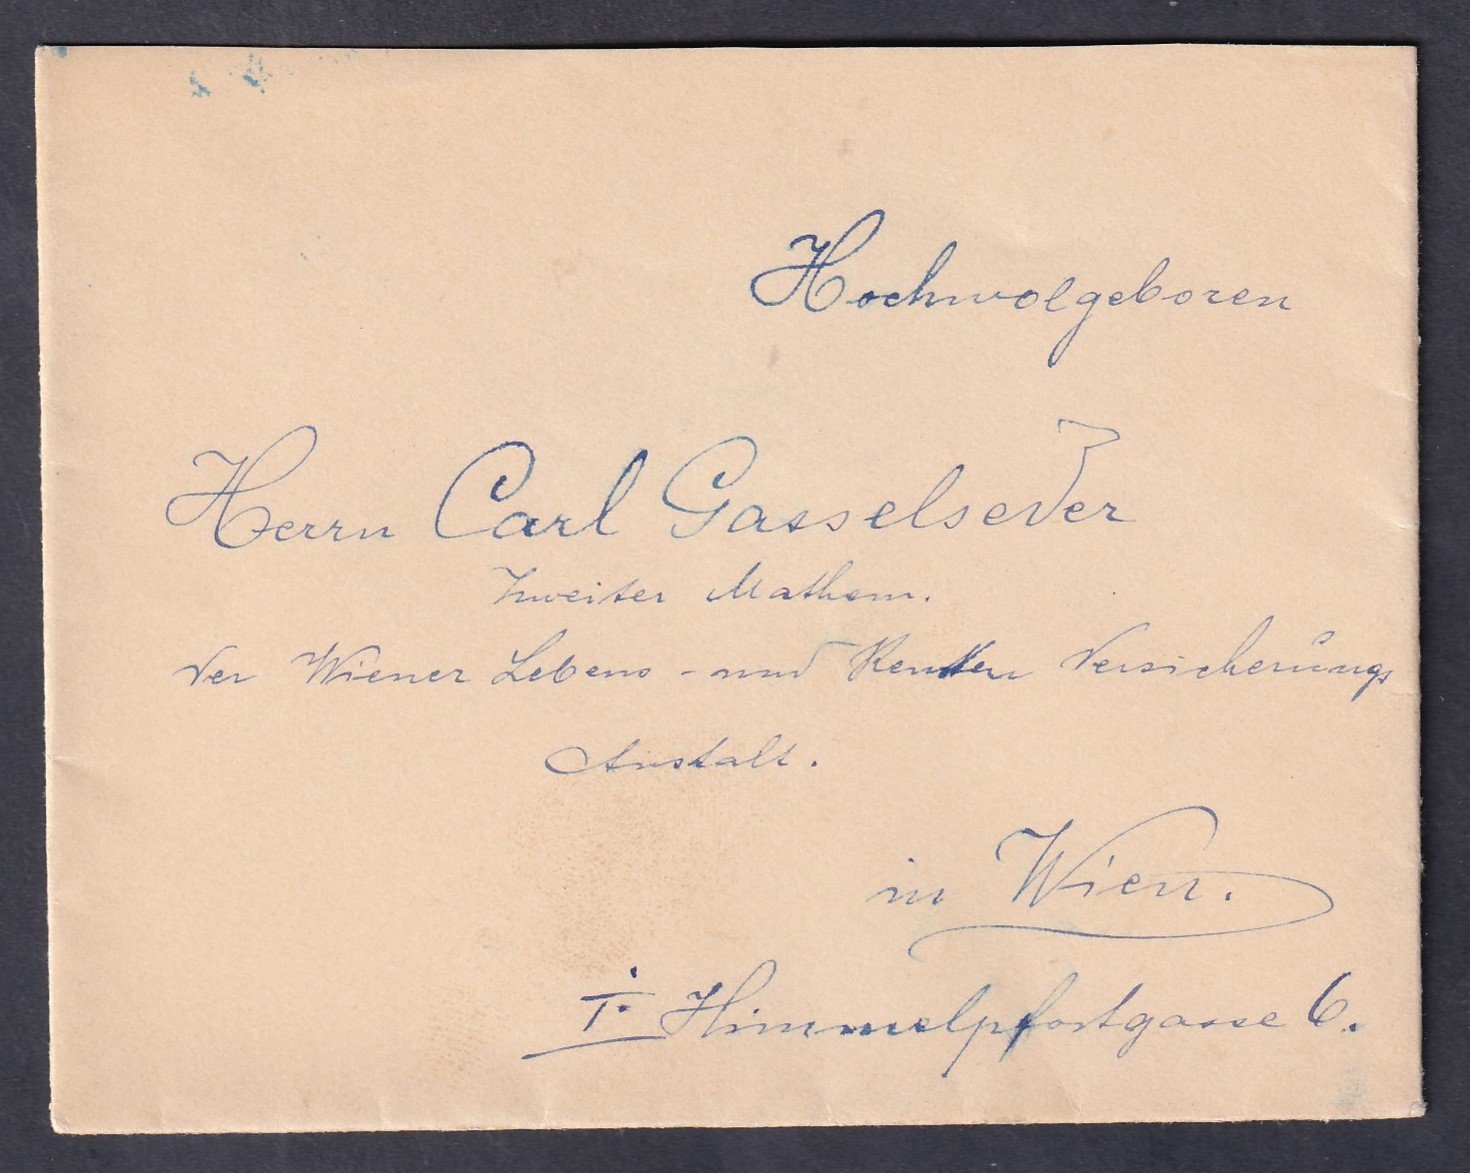 Hochwolgeboren
Herrn Carl Gasselseder
Zweiter Mathem.
der Wiener Lebens - und Renten Versicherungs
Anstalt.
in Wien.
I. Himmelpfortgasse 6.